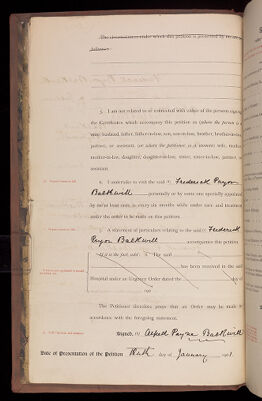 5. I am not related to or connected with either of the persons signing
the Certificates which accompany this petition as (where the person is a
man) husband, father, father-in-law, son, son-in-law, brother, brother-in-law,
partner, or assistant, (or where the petitioner is a woman) wife, mother,
mother-in-law, daughter, daughter-in-law, sister, sister-in-law, partner, or
assistant.
6. I undertake to visit the said Frederick Payne
Balkwill personally or by some one specially appointed
by me at least once in every six months while under care and treatment
under the order to be made on this petition.
7. A statement of particulars relating to the said Frederick
Payne Balkwill accompanies the petition.
If it is the fact, add: 8. The said
has been received in the said
Hospital under an Urgency Order dated the day of
190
The Petitioner therefore prays that an Order may be made in
accordance with the foregoing statement.
Signed, Alfred Payne Balkwill
Date of Presentation of the Petition day of January